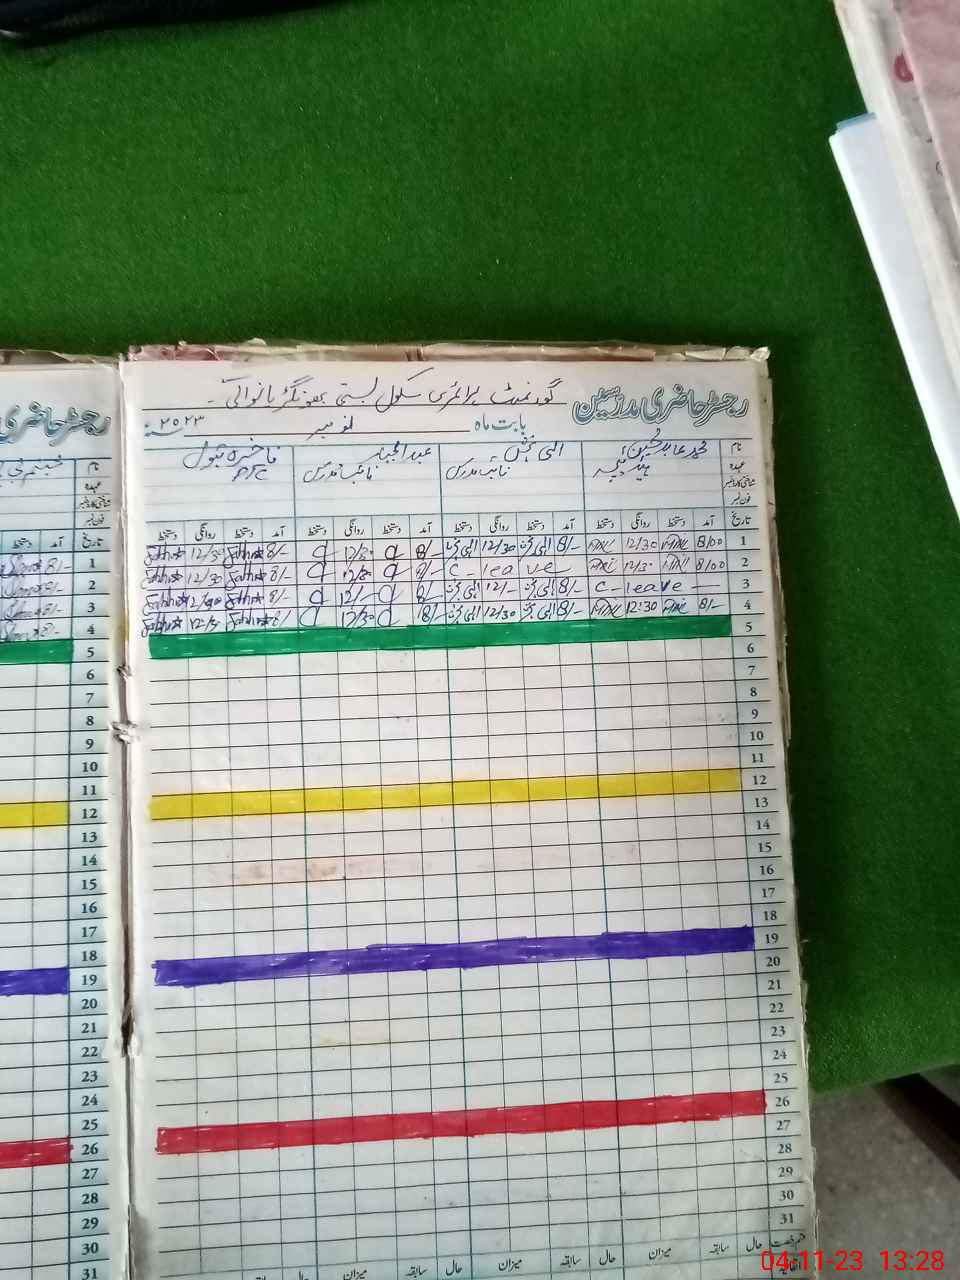 رجسٹر حاضری مدرسین
گورنمنٹ پرائمری سکول بستی
بابت ماہ نومبر ۲۰۲۳
نام محمد عابد حسین الٰہی بخش عبدالجبار
عہدہ ہیڈ ٹیچر نائب مدرس نائب مدرس
شناختی کارڈ نمبر
فون نمبر
تاریخ آمد دستخط روانگی دستخط آمد دستخط روانگی دستخط آمد دستخط روانگی دستخط آمد دستخط روانگی دستخط
1 8/00 12/30 8/- الٰہی بخش 12/30 الٰہی بخش 8/- 12/30 8/- 12/30
2 8/00 12/30 C- leave 8/- 12/30 8/- 12/30
3 C- leave 8/- الٰہی بخش 12/- الٰہی بخش 8/- 12/- 8/-
4 8/- 12:30 8/- الٰہی بخش 12/30 الٰہی بخش 8/- 12/30 8/-
5
6
7
8
9
10
11
12
13
14
15
16
17
18
19
20
21
22
23
24
25
26
27
28
29
30
31
حال سابقہ میزان حال سابقہ میزان حال سابقہ میزان حال سابقہ
رجسٹر حاضری
نام
عہدہ
شناختی کارڈ نمبر
فون نمبر
تاریخ آمد دستخط
1 8/-
2 8/-
3 8/-
4 8/-
5
6
7
8
9
10
11
12
13
14
15
16
17
18
19
20
21
22
23
24
25
26
27
28
29
30
31
04-11-23 13:28